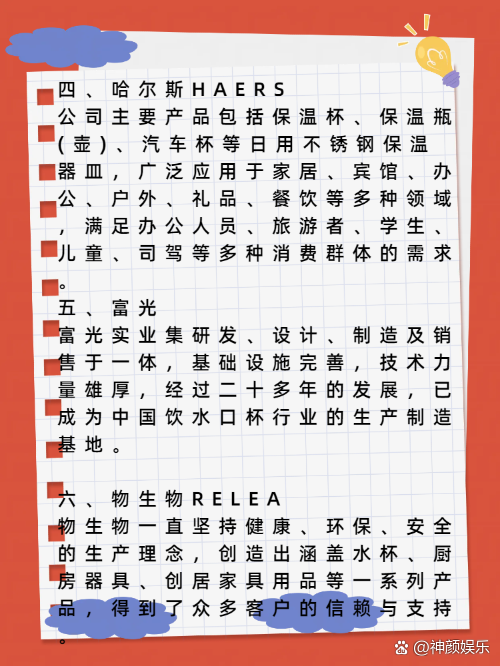 四、哈尔斯HAERS
公司主要产品包括保温杯、保温瓶
(壶)、汽车杯等日用不锈钢保温
器皿，广泛应用于家居、宾馆、办
公、户外、礼品、餐饮等多种领域
，满足办公人员、旅游者、学生、
儿童、司驾等多种消费群体的需求
。
五、富光
富光实业集研发、设计、制造及销
售于一体，基础设施完善，技术力
量雄厚，经过二十多年的发展，已
成为中国饮水口杯行业的生产制造
基地。
六、物生物RELEA
物生物一直坚持健康、环保、安全
的生产理念，创造出涵盖水杯、厨
房器具、创居家具用品等一系列产
品，得到了众多客户的信赖与支持
。
@神颜娱乐